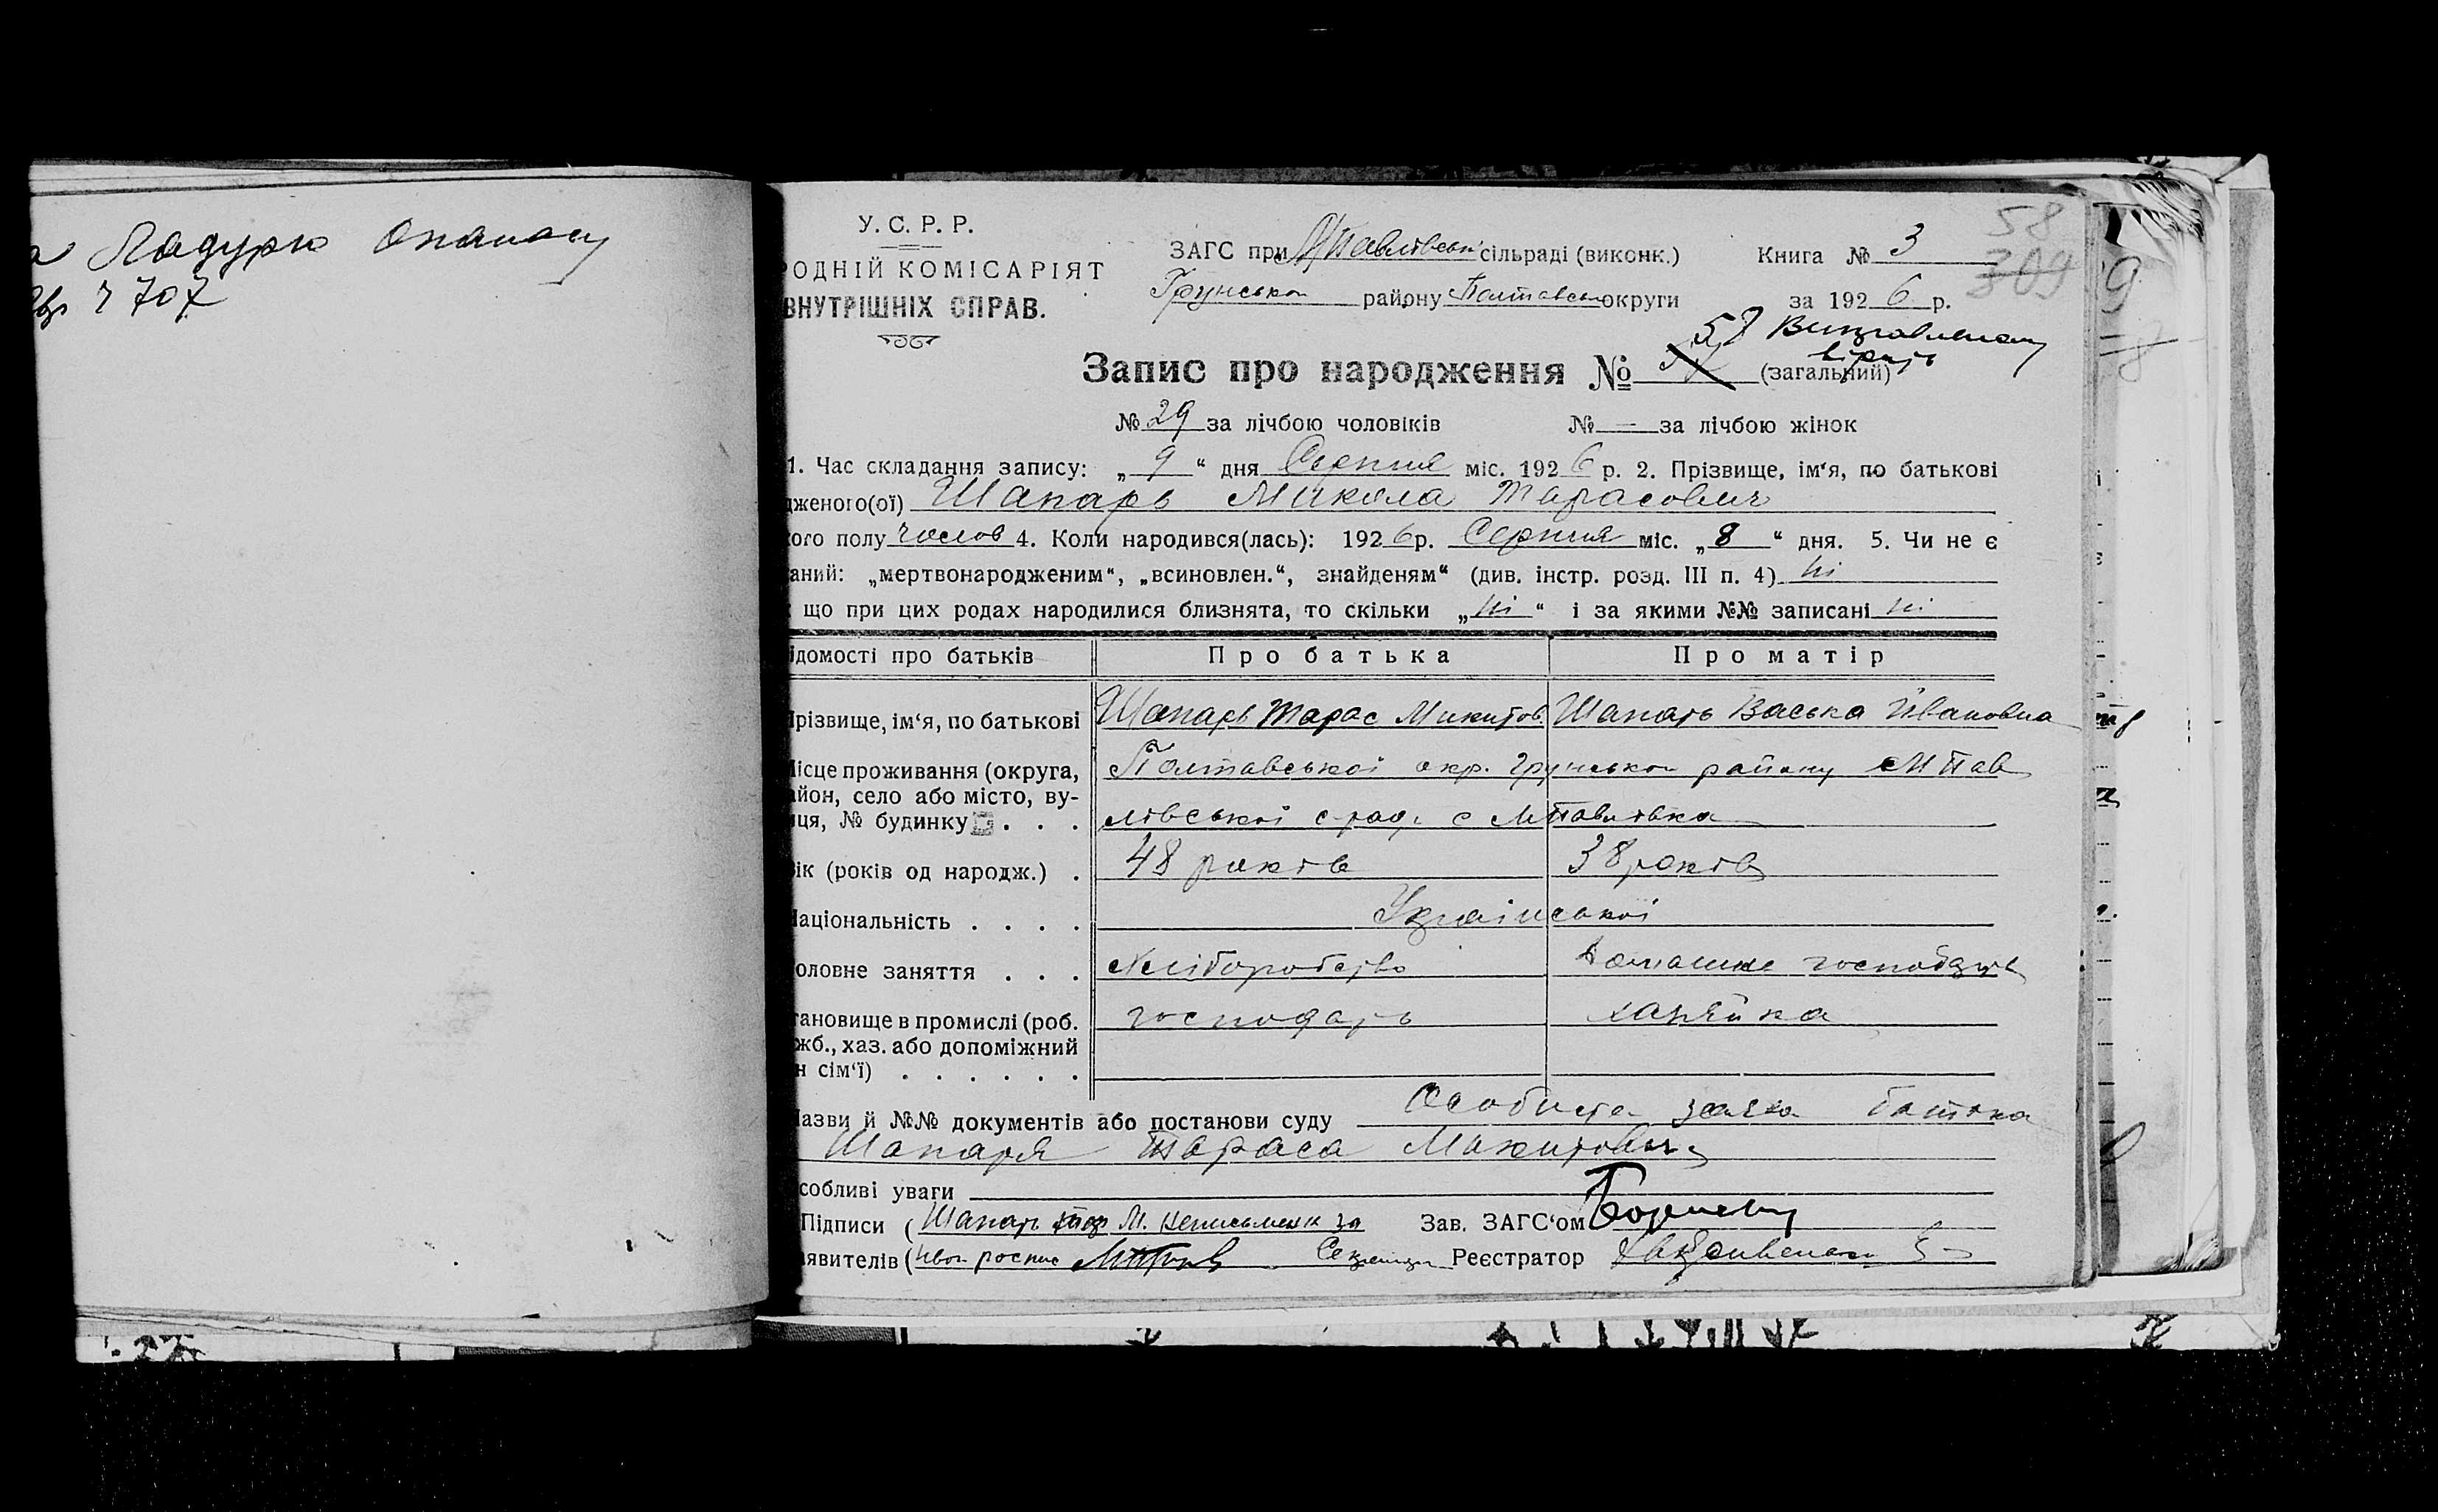 Ладурю Опанасу
707
У. С. Р. Р.
РОДНІЙ КОМІСАРІЯТ
ВНУТРІШНІХ СПРАВ.
ЗАГС при МПавлівськ сільраді (виконк.)
Грунської району Полтавської округи
Книга № 3
за 1926 р.
58
309
Запис про народження № 57 (загальний)
Виправленому вірить
№ 29 за лічбою чоловіків № — за лічбою жінок
1. Час складання запису: „ 9 “ дня Серпня міс. 1926 р. 2. Прізвище, ім‘я, по батькові
дженого(ої) Шапарь Микола Тарасович
кого полу чолов 4. Коли народився(лась): 1926 р. Серпня міс. „ 8 “ дня. 5. Чи не є
заний: „мертвонародженим“, „всиновлен.“, знайденям“ (див. інстр. розд. III п. 4) ні
що при цих родах народилися близнята, то скільки „ ні “ і за якими №№ записані ні
ідомості про батьків Про батька Про матір
Прізвище, ім‘я, по батькові Шапарь Тарас Микитов. Шапарь Васька Ивановна
Місце проживання (округа, Полтавської окр. Грунської району МПав
айон, село або місто, ву-
иця, № будинку . . . лівської с-рад. с МПавлівка
Вік (років од народж.) . 48 років 38 років
Національність . . . . Української
оловне заняття . . . Хліборобство Домашне господарь
тановище в промислі (роб. господарь хазяйка
жб., хаз. або допоміжний
н сім‘ї) . . . . . .
Назви й №№ документів або постанови суду Особиста заява батька
Шапаря Тараса Микитович
собливі уваги
Підписи ( Шапарь Тар М. неписьменн за Зав. ЗАГС‘ом
явителів ( його роспис Секретарь Реєстратор